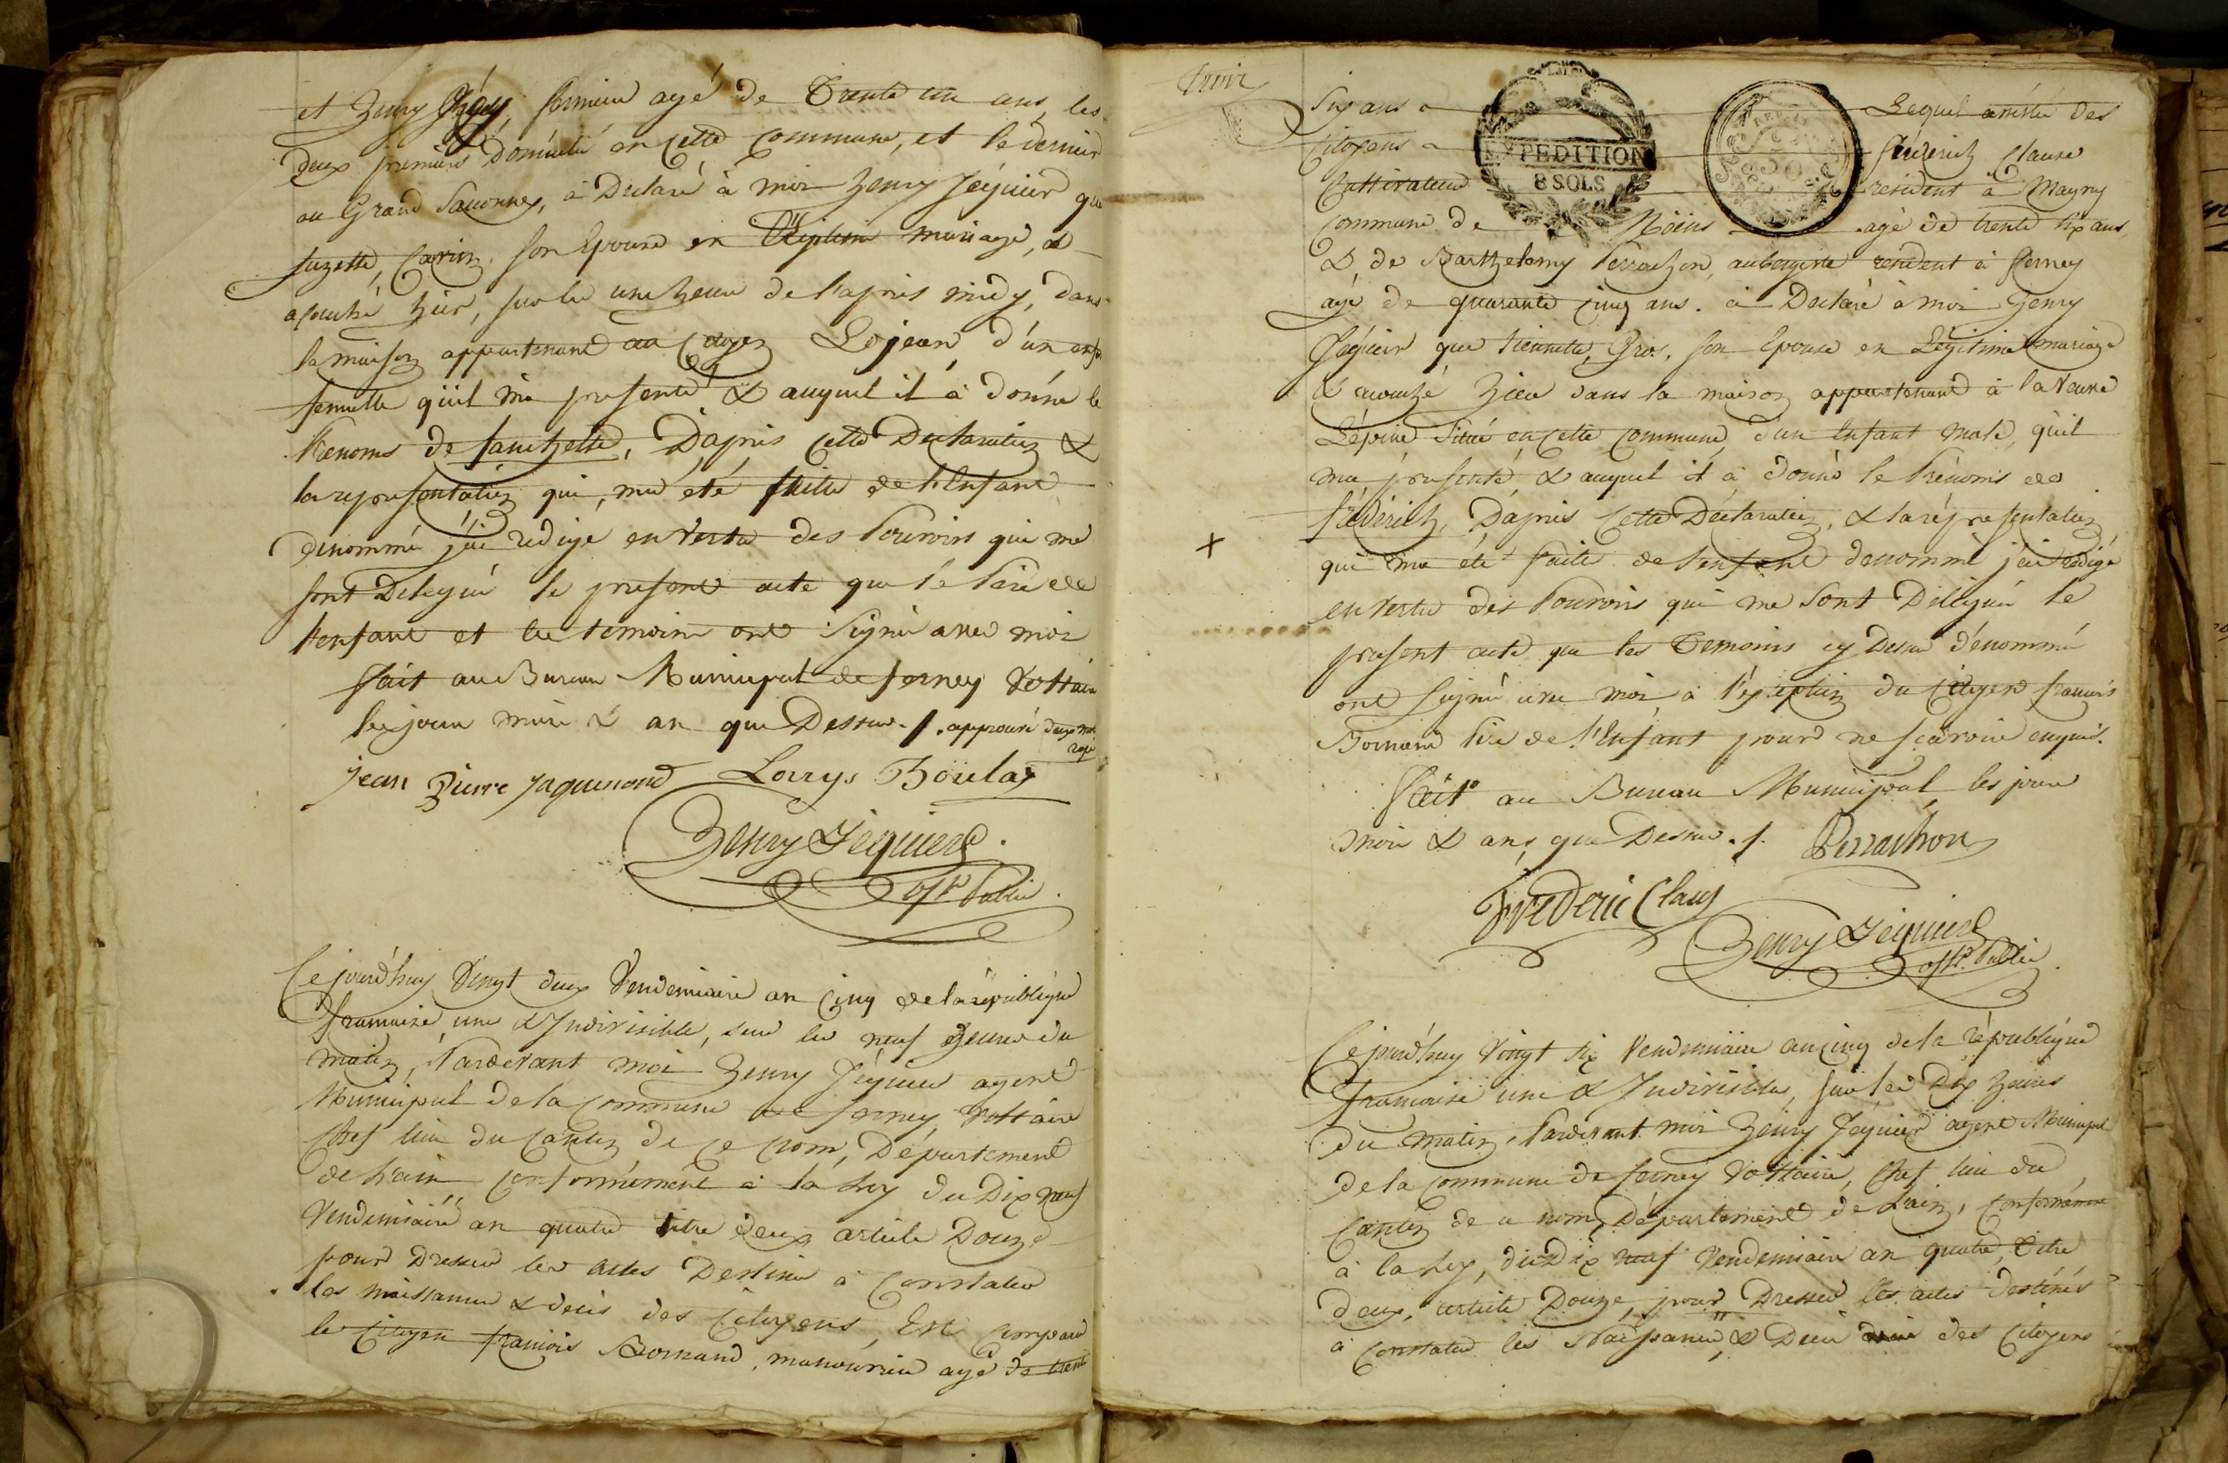 et henry fermier agé de Trente un ans, les
deux premiers Domicilié en Cette Commune, et le dernier
au Grand Saconnex, à Declaré à moi henry Jéquier que
Suzette, son Epouse en mariage, a
acouché hier, sur les une heure de l'apres midy, dans
la maison appartenant au Citoyen Lojean d'un enfant
femelle quil ma presenté & auquel il à donné le
Prenoms de fanchette, D'apris Cette Declaration &
la representation qui ma été faitte de l'Enfant
denommé j'ai redigé en vertu des Pouvoirs qui me
sont Delegué le present acte que le Pere de
l'enfant et les temoins ont signé avec moi
fait au Bureau Municipal de ferney Voltaire
les jour mois & an que Dessus ./. approuvé deux mot
rayé
jean Pierre jaquemond Louys Boulay
Henry Jéquier
off. Public
Cejourd'huy Vingt deux Vendemiaire an Cinq de la république
francaise une & Indivisible, sur les neuf heures du
matin, Pardevant moi henry Jéquier agent
Municipal de la Commune de ferney Voltaire
Chef lieu du Canton de Ce nom, Département
de l'ain conformément à la Loy du Dix neuf
Vendemiaire an quatre titre deux article Douze
pour Dresser les actes Destiné à Constater
les naissances & décés des Citoyens, Est Comparu
le Citoyen francois Bornand, manouvrier agé de trente
Six ans Lequel assisté des
EXPEDITION
8 SOLS
Citoyens fréderich Claure
Cultivateur resident à Magny
Commune de agé de trente six ans,
& de Barthelemy Perrachon, aubergiste resident à ferney
agé de quarante Cinq ans. à Declaré à moi henry
Jéquier que Pierrette Gros, son Epouse en Légitime mariage
à acouché hier dans la maison appartenant à la Veuve
Lépine Situé en cette Commune, d'un Enfant male, qu'il
ma presenté, & auquel il à donné le Prénoms de
fréderich, D'apris Cette Déclaration, & la répresentation
qui ma été faite de l'enfant denommé j'ai rédigé
en vertu des Pouvoirs qui me sont Délégué le
present acte que les Temoins cy Dessus dénommé
ont signé avec moi à l'exception du Citoyen francois
Bornand Pere de l'Enfant pour ne scavoir enquis.
fait au Bureau Municipal les jour
mois & an, que Dessus ./. Perrachon
×
Frederic Claus
Henry Jéquier
off. Public
Cejourd'huy Vingt six Vendemiaire an Cinq de la république
francaise une & Indivisible, sur les Dix heures
du matin, Pardevant moi henry Jéquier agent Municipal
de la Commune de ferney Voltaire, Chef lieu du
Canton de ce nom, Département de Lain, conformément
à la Loy, du Dix neuf Vendemiaire an quatre, titre
deux, article Douze, pour Dresser les actes destinés
à Constater les Naissances, & des Citoyens